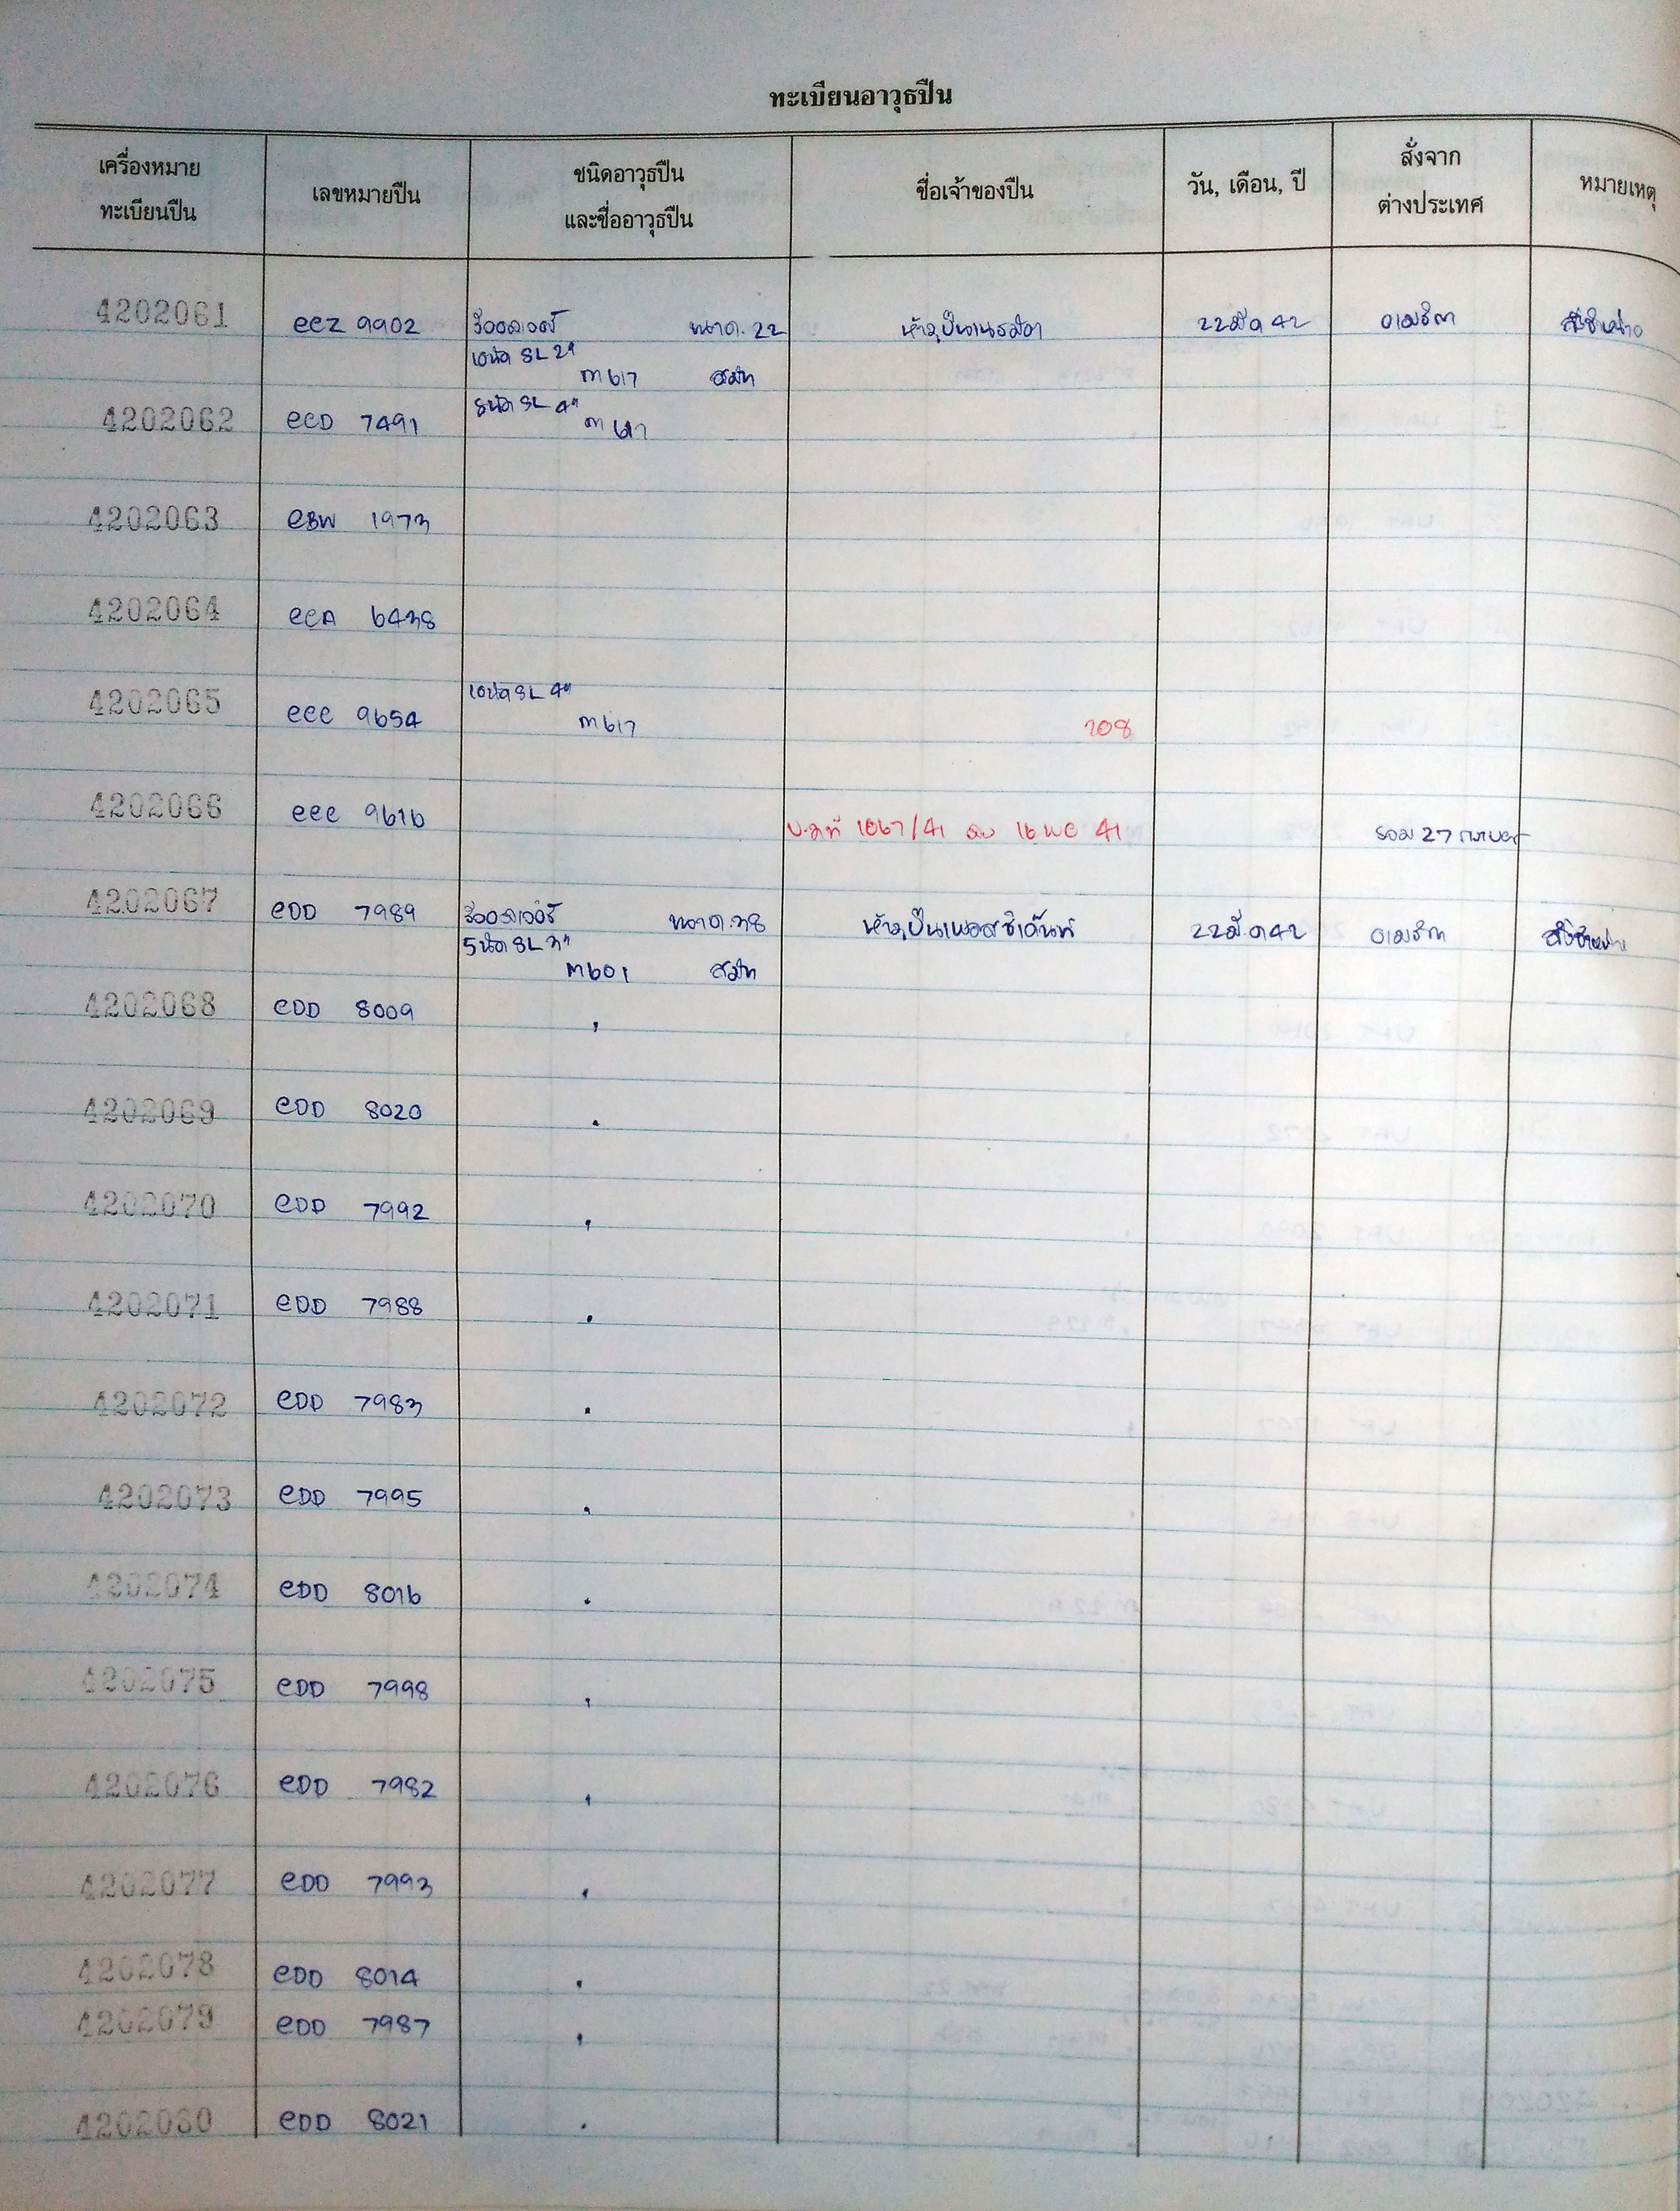 ทะเบียนอาวุธปืน
เครื่องหมาย
ทะเบียนปืน
เลขหมายปืน
ชนิดอาวุธปืน
และชื่ออาวุธปืน
ชื่อเจ้าของปืน
วัน, เดือน, ปี
สั่งจาก
ต่างประเทศ
หมายเหตุ
4202061 ecz 9902 รีวอลเวอร์ ขนาด.22 22 มีค 42 อเมริกา สั่งจำหน่าย
10นัด SL 2"
m 617 สมิท
4202062 eCD 7491 8นัด SL 4"
m 617
4202063 eBW 1973
4202064 eCA 6438
4202065 eCC 9654 10นัด SL 4"
m 617 208
4202066 eee 9616
1067/41 ลว 16 พย 41 รวม 27 กระบอก
4202067 eDD 7989 รีวอลเวอร์ ขนาด.38 ห้างปืนเพรสซิเด้นท์ 22 มี.ค 42 อเมริกา สั่งจำหน่าย
5นัด SL 3"
m 601 สมิท
4202068 eDD 8009 "
4202069 eDD 8020 "
4202070 eDD 7992 "
4202071 eDD 7988 "
4202072 eDD 7983 "
4202073 eDD 7995 "
4202074 eDD 8016 "
4202075 eDD 7998 "
4202076 eDD 7982 "
4202077 eDD 7993 "
4202078 eDD 8014 "
4202079 eDD 7987 "
4202080 eDD 8021 "